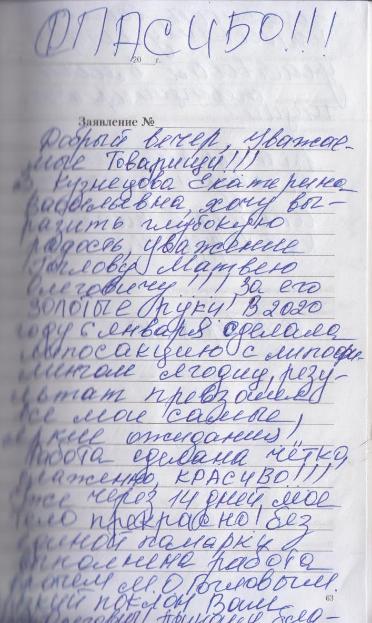 СПАСИБО!!!
20 г.
Заявление №
Добрый вечер, уважае-
мые Товарищи!!!
Я Кузнецова Екатерина
Васильевна, хочу вы-
разить глубокую
радость, уважение
Гоглову Матвею
Олеговичу!!! За его
золотые руки! В 2020
году 6 января сделала
липосакцию с липофи-
лингом ягодиц, резу-
льтат превзошел
все мои самые
яркие ожидания!
Работа сделана чётко,
слаженно, КРАСИВО!!!
Уже через 14 дней мое
тело прекрасно! Без
единой помарки
выполнена работа
врачем М.О. Гогловым.
Низкий поклон Вам
63